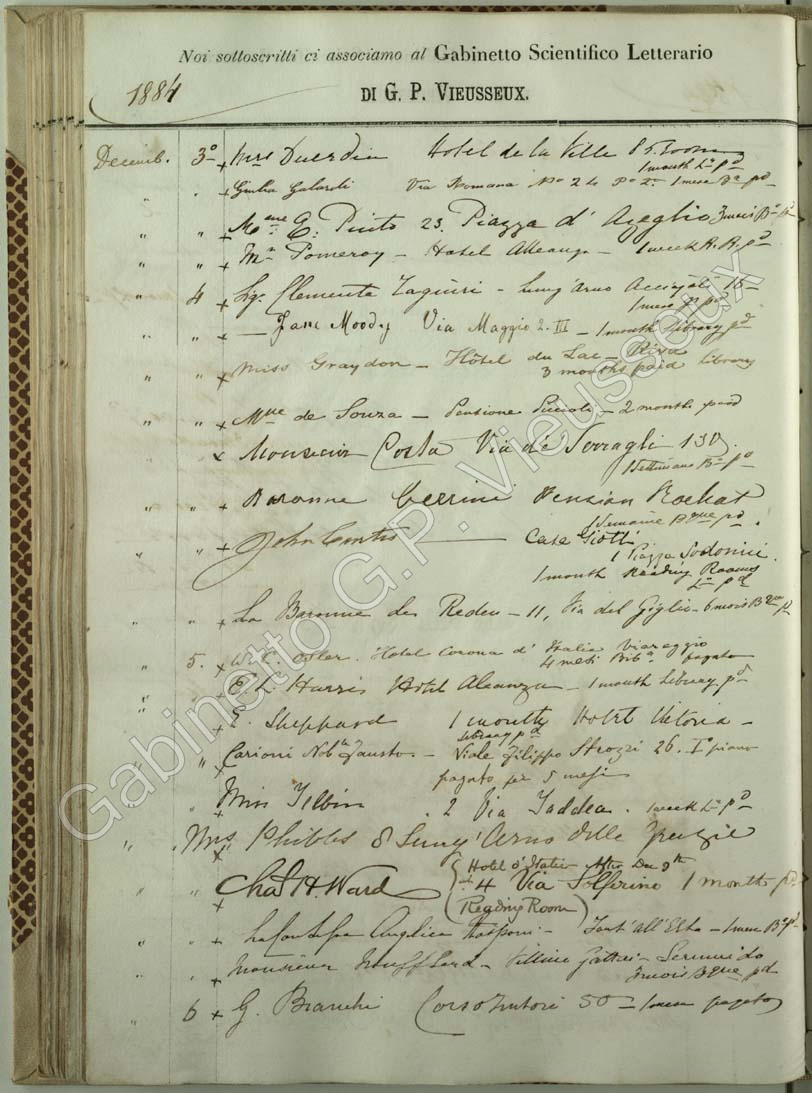 Noi sottoscritti ci associamo al Gabinetto Scientifico Letterario
1884
DI G. P. VIEUSSEUX.
Decemb. 3º Mrs Duerdin Hotel de la Ville
1 month Ly pd
" Giulia Via Romana Nº 24 Pº 2º 1 mese Bª pd
" " Mme E. Pinto 23. Piazza d'Azeglio 3 mois Bª pd
" " Mr Pomeroy - Hotel Alleanza - 1 week R. R. pd
" 4 Sig. Clemente - Lung'Arno Acciajoli 16
1 mese
" " — Jane Moody Via Maggio 2. III - 1 month Library pd
" " Miss Graydon - Hôtel du Lac - Riva
3 months paid Library
" " Mme de Souza - Pensione - 2 months paid
Monsieur Costa Via de' Serragli 130
" " Baronne Cerrini Pension Rochat
1 semaine Bque pd
" " John Casa Giotti
1 Piazza Soderini
1 month Reading Rooms
pd
" " La Baronne de Reden - 11, Via del Giglio - 6 mois Bque pd
" 5. W. C. Osler. Hotel Corona d'Italia Viareggio
4 mesi Bibª pagato
" E. L. Harris Hotel Aleanza - 1 month Library pd
" E. Sheppard 1 month Hotel Vittoria -
Library pd
" " Carioni Nob. Fausto - Viale Filippo Strozzi 26. Iº piano
pagato per 5 mesi
" Miss 2 Via Taddea. 1 week Ly pd
" " Mrs Phibbs 8 Lung'Arno delle Grazie
" " Chas H. Ward Hotel d'Italie After Dec 9th
4 Via Solferino 1 month pd.
Reading Room
" " La Contessa Angelica Rasponi - Font'all'Erta - 1 mese Bª pd
" " Monsieur Noufflard - Villino
3 mois Bque pd
" 6 G. Bianchi Corso Tintori 50 - 1 mese pagato
Gabinetto G.P. Vieusseux